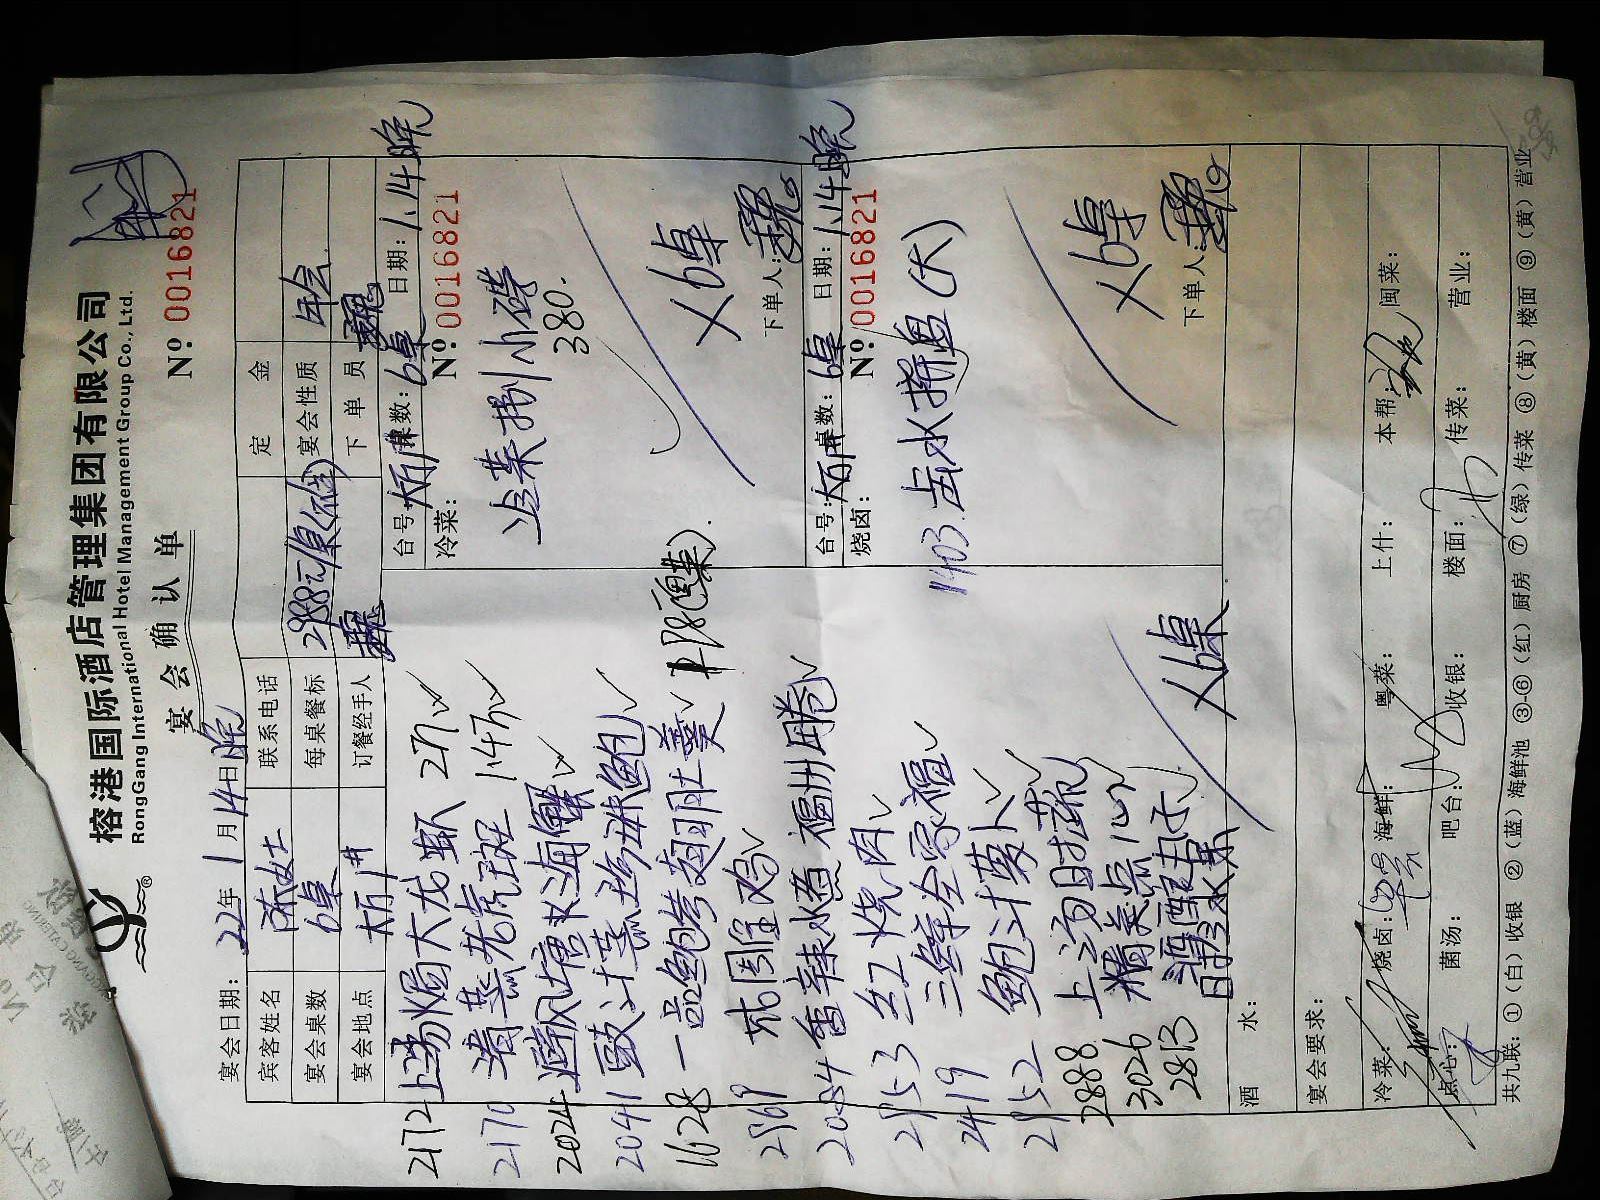 榕港国际酒店管理集团有限公司
RongGang International Hotel Management Group Co., Ltd.
宴会确认单
№ 0016821
宴会日期: 22年1月14日晚
宾客姓名 陈女士 联系电话 定金
宴会桌数 6桌 每桌餐标 2988元/桌 宴会性质 年会
宴会地点 订餐经手人 魏 下单员 魏
2172 上汤焗大龙虾 2斤
2170 清蒸老虎斑 1.4斤
2024 避风塘炒海蟹
2041 豉汁蒸珍珠鲍
1628 一品鲍参翅肚羹
盐焗鸡
香辣水煮福州卷
红烧肉
2419 三鲜全家福
鲍汁萝卜
2888 上汤时蔬
3026 精美点心
2813 酒酿丸子
水果
×6桌
台号: 桌数: 6桌 日期: 1.14晚
冷菜: № 0016821
冷菜捌小碟
380.
×6桌
下单人: 魏
台号: 桌数: 6桌 日期: 1.14晚
烧卤: № 0016821
1403 卤水拼盘(大)
×6桌
下单人: 魏
酒水:
宴会要求:
冷菜: 烧卤: 海鲜: 粤菜: 上什: 本帮: 闽菜:
点心: 菌汤: 吧台: 收银: 楼面: 传菜: 营业:
共九联: ①(白)收银 ②(蓝)海鲜池 ③-⑥(红)厨房 ⑦(绿)传菜 ⑧(黄)楼面 ⑨(黄)营业